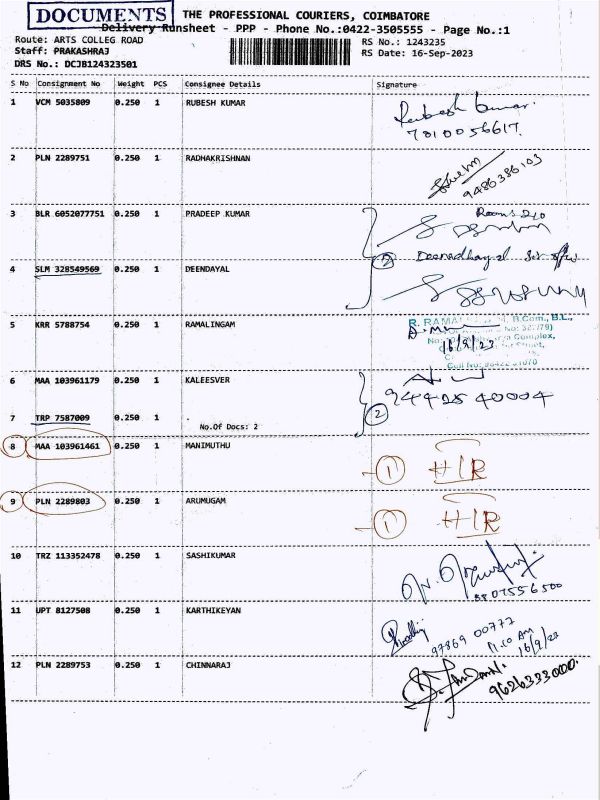 DOCUMENTS
THE PROFESSIONAL COURIERS, COIMBATORE
Delivery Runsheet - PPP - Phone No.:0422-3505555 - Page No.:1
Route: ARTS COLLEG ROAD
RS No.: 1243235
Staff: PRAKASHRAJ
RS Date: 16-Sep-2023
DRS No.: DCJB124323501
S No Consignment No Weight PCS Consignee Details Signature
1 VCM 5035809 0.250 1 RUBESH KUMAR
Rubesh kumar.
7010056617.
2 PLN 2289751 0.250 1 RADHAKRISHNAN
9486386103
3 BLR 6052077751 0.250 1 PRADEEP KUMAR
2 Deenadhayal
4 SLM 328549569 0.250 1 DEENDAYAL
5 KRR 5788754 0.250 1 RAMALINGAM
16/9/23
6 MAA 103961179 0.250 1 KALEESVER
2 9442540004
7 TRP 7587009 0.250 1 .
No.Of Docs: 2
8 MAA 103961461 0.250 1 MANIMUTHU
1 HIR
9 PLN 2289803 0.250 1 ARUMUGAM
1 HIR
10 TRZ 113352478 0.250 1 SASHIKUMAR
11 UPT 8127508 0.250 1 KARTHIKEYAN
97869 00777
11.10 AM
16/9/23
12 PLN 2289753 0.250 1 CHINNARAJ
9626333000.